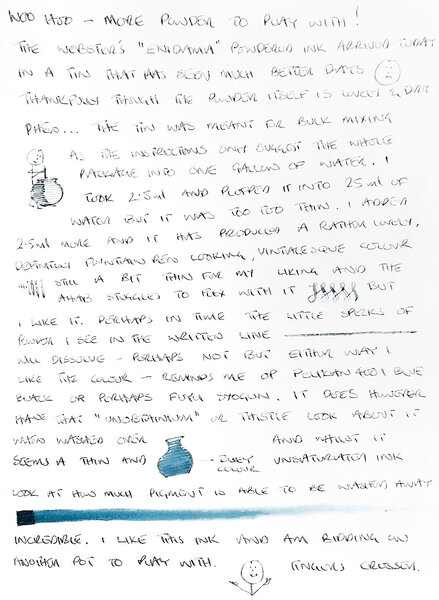 WOO HOO - MORE POWDER TO PLAY WITH!
THE WEBSTER'S "ENIDAMA" POWDERED INK ARRIVED TODAY
IN A TIN THAT HAS SEEN MUCH BETTER DAYS
THANKFULLY THOUGH THE POWDER ITSELF IS LOVELY & DRY
PHEW... THE TIN WAS MEANT FOR BULK MIXING
AS THE INSTRUCTIONS ONLY SUGGEST THE WHOLE
PACKAGE INTO ONE GALLON OF WATER. I
TOOK 2.5ml AND PLOPPED IT INTO 25ml OF
WATER BUT IT WAS TOO TOO THIN. I ADDED
2.5ml MORE AND IT HAS PRODUCED A RATHER LOVELY,
DEFINITELY FOUNTAIN PEN LOOKING, VINTAGESQUE COLOUR
STILL A BIT THIN FOR MY LIKING AND THE
AHAB STUGGLES TO FLEX WITH IT BUT
I LIKE IT. PERHAPS IN TIME THE LITTLE SPECKS OF
POWDER I SEE IN THE WRITTEN LINE
WILL DISSOLVE - PERHAPS NOT BUT EITHER WAY I
LIKE THE COLOUR - REMINDS ME OF PELIKAN 4001 BLUE
BLACK OR PERHAPS FUYU SYOGUN. IT DOES HOWEVER
HAVE THAT "UNOBTAINIUM" OR THISTLE LOOK ABOUT IT
WHEN WASHED OVER AND WHILST IT
SEEMS A THIN AND UNSATURATED INK
COLOUR
LOOK AT HOW MUCH PIGMENT IS ABLE TO BE WASHED AWAY
INCREDIBLE. I LIKE THIS INK AND AM BIDDING ON
ANOTHER POT TO PLAY WITH. FINGERS CROSSED.